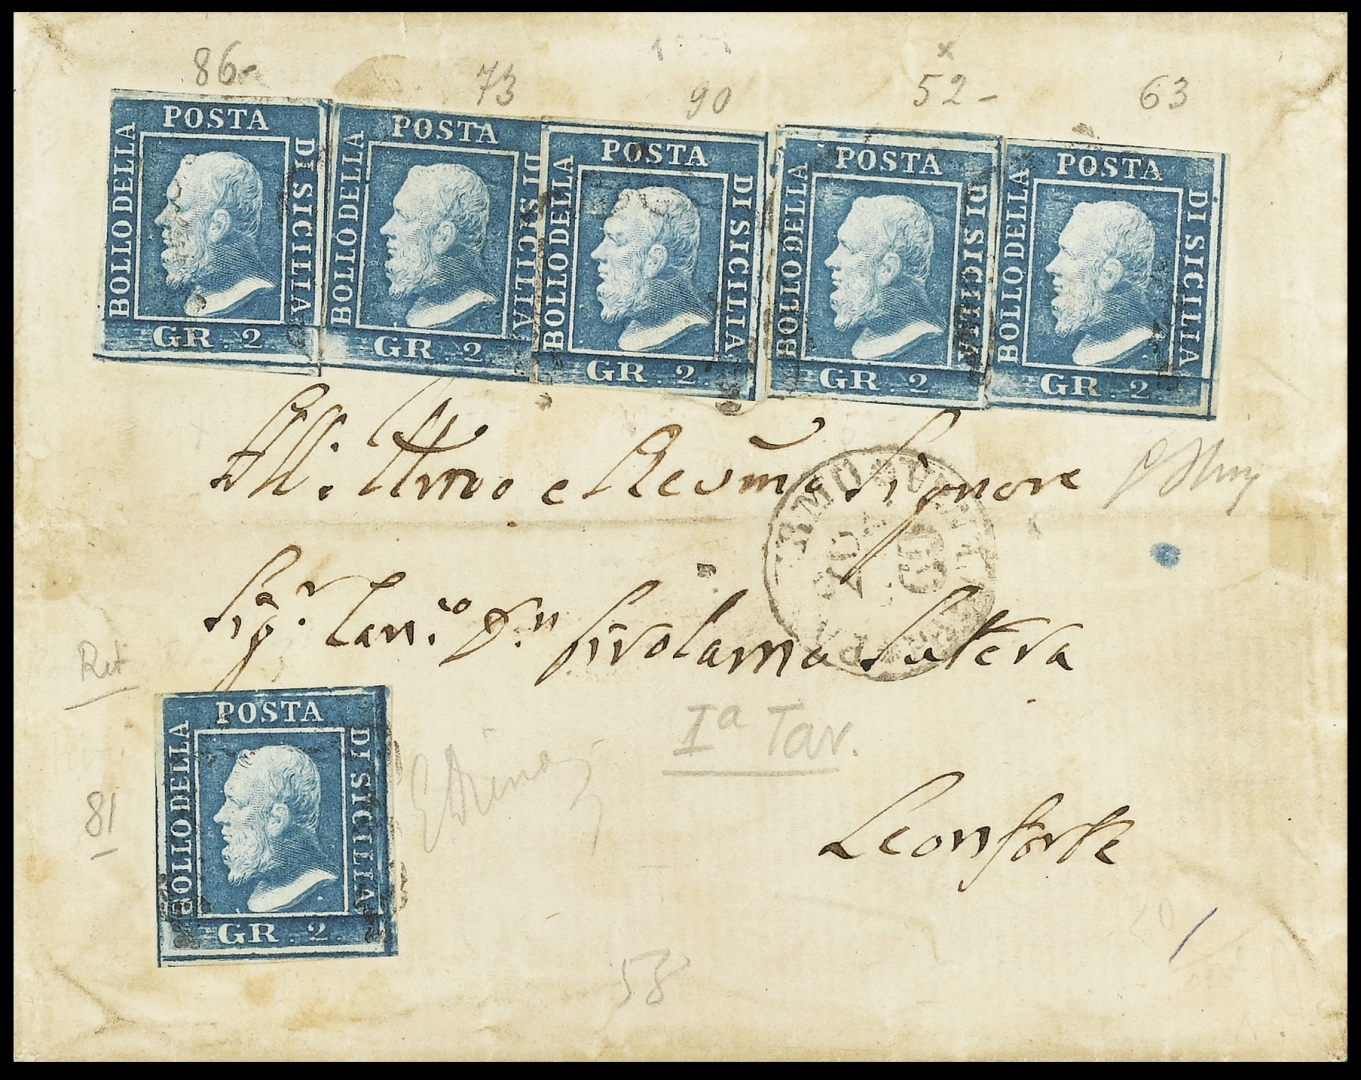 86
73
90
52 -
63
POSTA
BOLLO DELLA
DI SICILIA
GR. 2
POSTA
BOLLO DELLA
DI SICILIA
GR. 2
POSTA
BOLLO DELLA
DI SICILIA
GR. 2
POSTA
BOLLO DELLA
DI SICILIA
GR. 2
POSTA
BOLLO DELLA
DI SICILIA
GR. 2
All' Illmo e Revmo Signore
Sigr. Can.co Dn Girolamo Sutera
Rit
Ia Tar.
POSTA
BOLLO DELLA
DI SICILIA
GR. 2
81
Leonforte
58